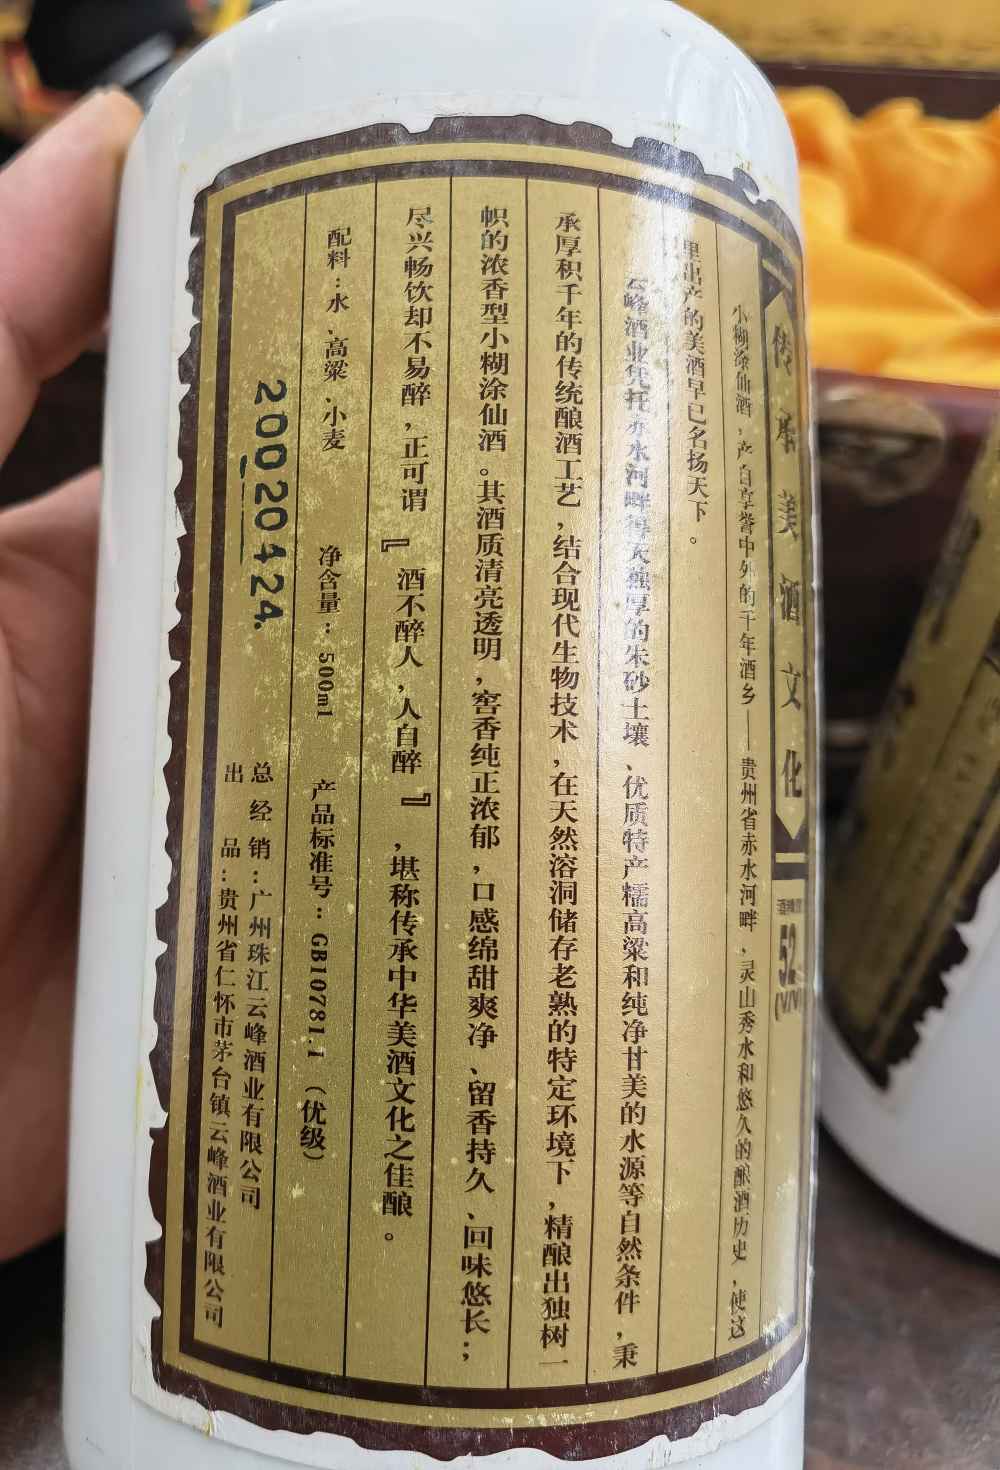 传承美酒文化
52
小糊涂仙酒，产自享誉中外的千年酒乡——贵州省赤水河畔，灵山秀水和悠久的酿酒历史，使这
里出产的美酒早已名扬天下。
云峰酒业凭托赤水河畔得天独厚的朱砂土壤、优质特产糯高粱和纯净甘美的水源等自然条件，秉
承厚积千年的传统酿酒工艺，结合现代生物技术，在天然溶洞储存老熟的特定环境下，精酿出独树一
帜的浓香型小糊涂仙酒。其酒质清亮透明，窖香纯正浓郁，口感绵甜爽净、留香持久、回味悠长；
尽兴畅饮却不易醉，正可谓『酒不醉人，人自醉』，堪称传承中华美酒文化之佳酿。
配料：水、高粱、小麦 净含量：500ml 产品标准号：GB10781.1（优级）
20020424.
总经销：广州珠江云峰酒业有限公司
出品：贵州省仁怀市茅台镇云峰酒业有限公司